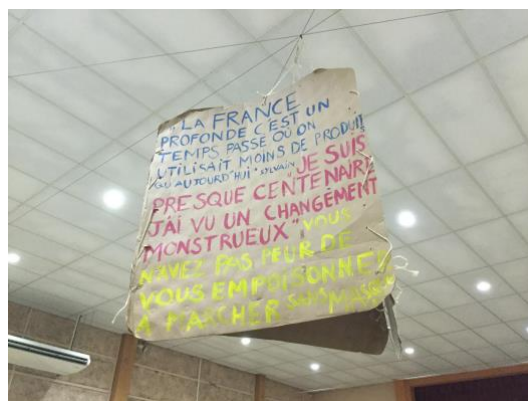 "LA FRANCE
PROFONDE C'EST UN
TEMPS PASSÉ OÙ ON
UTILISAIT MOINS DE PRODUIT
QU'AUJOURD'HUI" SYLVAIN "JE SUIS
PRESQUE CENTENAIRE
J'AI VU UN CHANGEMENT
MONSTRUEUX" VOUS
N'AVEZ PAS PEUR DE
VOUS EMPOISONNER
À MARCHER SANS MASQUE